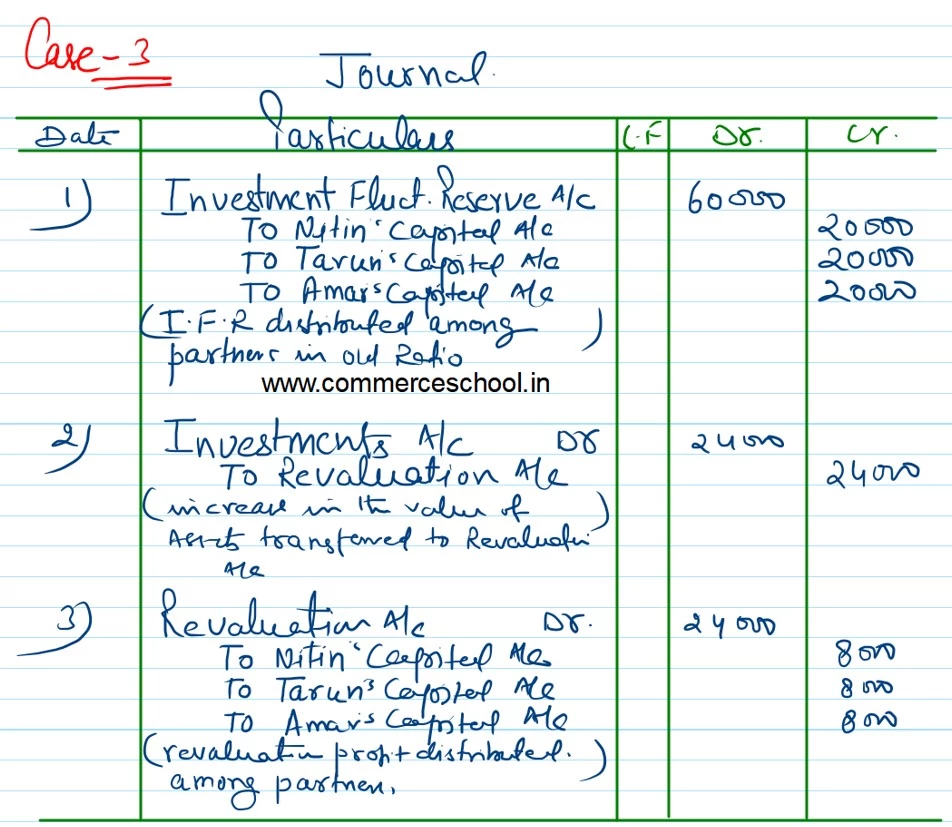 Case-3
Journal.
Date Particulars L.F Dr. Cr.
1) Investment Fluct. Reserve A/c 60000
To Nitin's Capital A/c 20000
To Tarun's Capital A/c 20000
To Amar's Capital A/c 20000
(I.F.R distributed among
partners in old Ratio)
www.commerceschool.in
2) Investments A/c Dr 24000
To Revaluation A/c 24000
(increase in the value of
Assets transferred to Revaluation
A/c)
3) Revaluation A/c Dr. 24000
To Nitin's Capital A/c 8000
To Tarun's Capital A/c 8000
To Amar's Capital A/c 8000
(revaluation profit distributed.
among partners.)